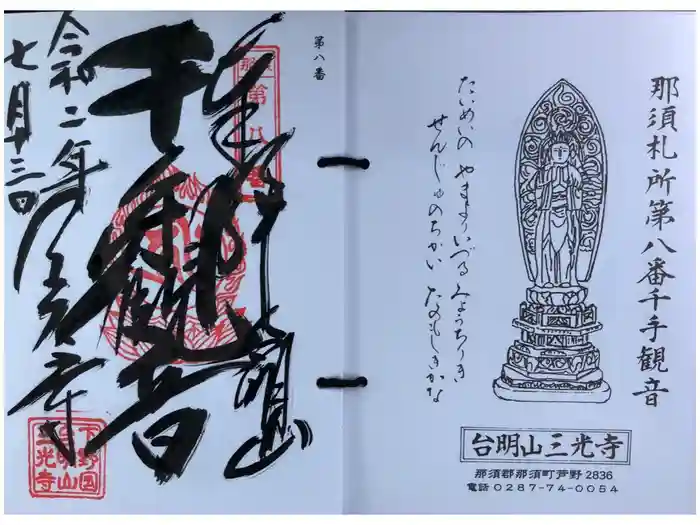 那須札所第八番千手観音
台明山三光寺
那須郡那須町芦野2836
電話 0287-74-0054
たいめいの やまよりいづる みょうちりき
せんじゅのちかい たのもしきかな
第八番
千手観音
令和二年
七月十三日
三光寺
下野国
台明山
三光寺